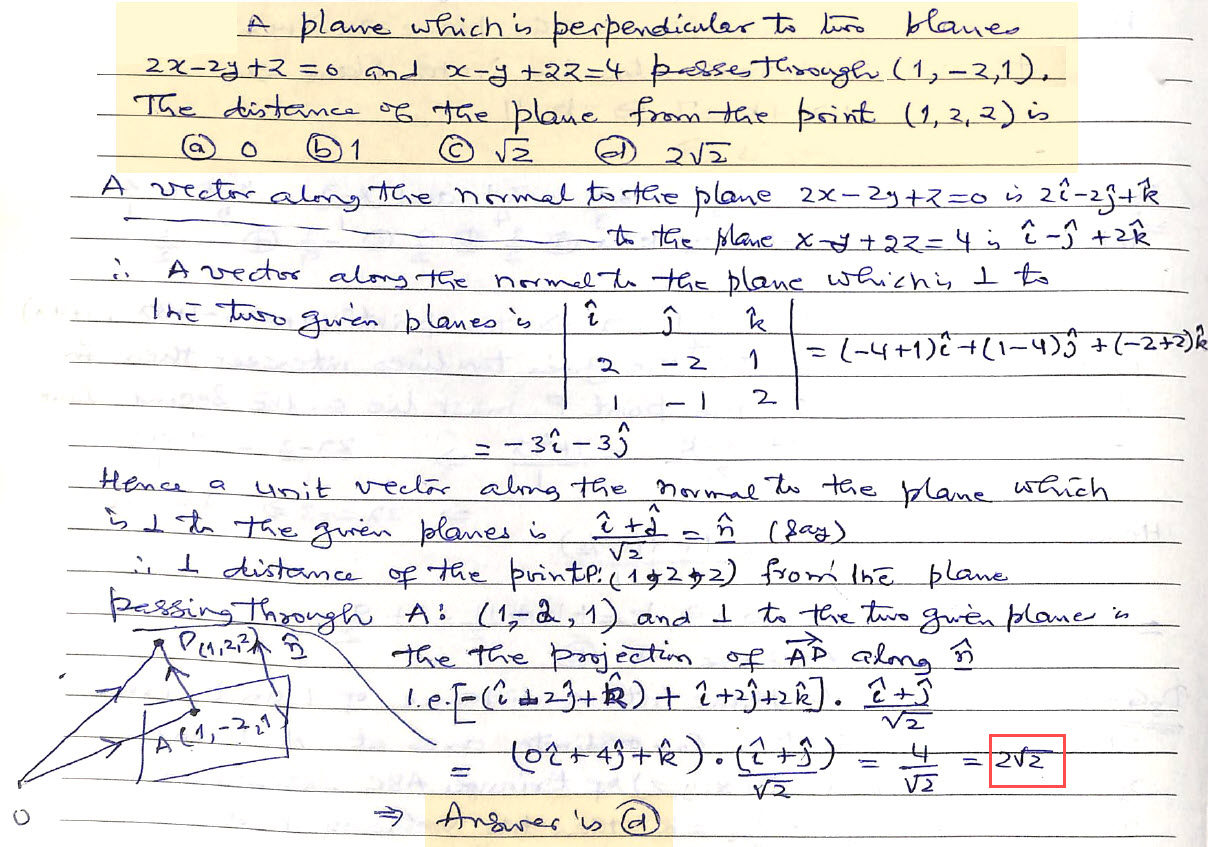 A plane which is perpendicular to two planes
2x-2y+z=0 and x-y+2z=4 passes through (1,-2,1).
The distance of the plane from the point (1,2,2) is
(a) 0 (b) 1 (c) √2 (d) 2√2
A vector along the normal to the plane 2x-2y+z=0 is 2î-2ĵ+k̂
———————— to the plane x-y+2z=4 is î-ĵ+2k̂
∴ A vector along the normal to the plane which is ⊥ to
the two given planes is | î ĵ k̂ |
| 2 -2 1 | = (-4+1)î+(1-4)ĵ+(-2+2)k̂
| 1 -1 2 |
= -3î-3ĵ
Hence a unit vector along the normal to the plane which
is ⊥ to the given planes is (î+ĵ)/√2 = n̂ (say)
∴ ⊥ distance of the point P:(1,2,2) from the plane
passing through A: (1,-2,1) and ⊥ to the two given plane is
the the projection of AP→ along n̂
i.e. [-(î-2ĵ+k̂) + î+2ĵ+2k̂] . (î+ĵ)/√2
= (0î+4ĵ+k̂) . (î+ĵ)/√2 = 4/√2 = 2√2
⇒ Answer is (d)
P(1,2,2) n̂
A(1,-2,1)
O